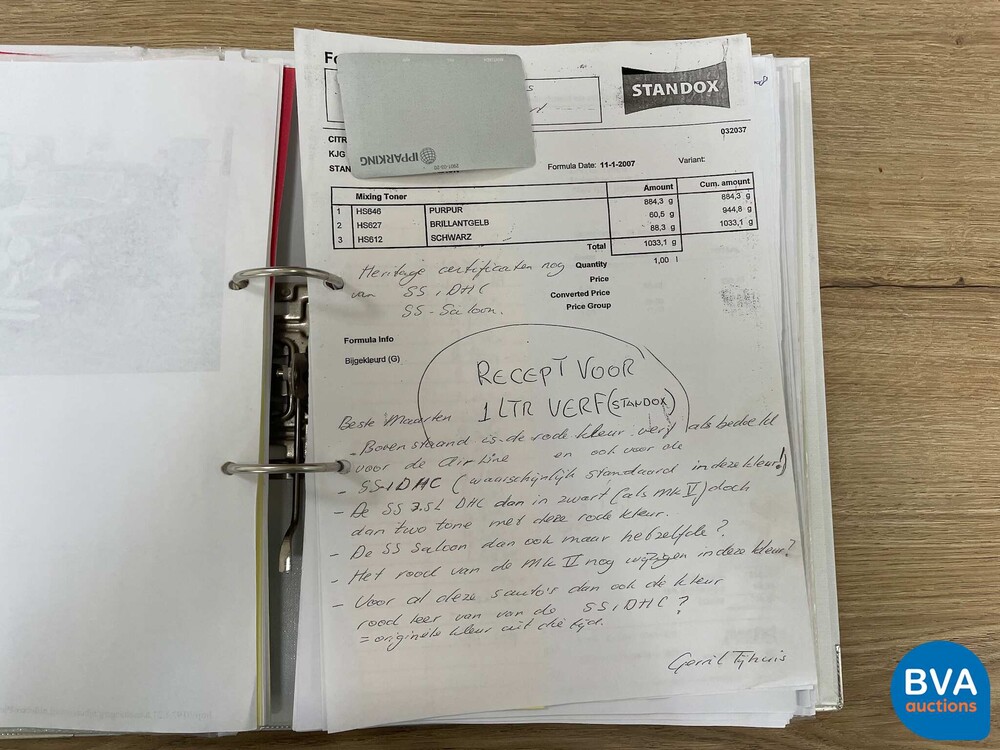 Fo
STANDOX
032037
CITR
KJG
STAN
IPPARKING
Formula Date: 11-1-2007 Variant:
Mixing Toner Amount Cum. amount
1 HS646 PURPUR 884,3 g 884,3 g
2 HS627 BRILLANTGELB 60,5 g 944,8 g
3 HS612 SCHWARZ 88,3 g 1033,1 g
Total 1033,1 g
Quantity 1,00 l
Price
Converted Price
Price Group
Heritage certificaten nog
van SS1 DHC
SS-Saloon.
Formula Info
Bijgekleurd (G)
RECEPT VOOR
1 LTR VERF (STANDOX)
Beste Maarten
- Bovenstaand is de rode kleur verf als bedoeld
voor de Airline en ook voor de
- SS1 DHC (waarschijnlijk standaard in deze kleur!)
- De SS 3.5L DHC dan in zwart (als MK V) doch
dan two tone met deze rode kleur.
- De SS Saloon dan ook maar hetzelfde?
- Het rood van de MK V nog wijzigen in deze kleur?
- Voor al deze 5 auto's dan ook de kleur
rood leer van van de SS1 DHC?
= originele kleur uit die tijd.
Gerrit Tijhuis
BVA
auctions